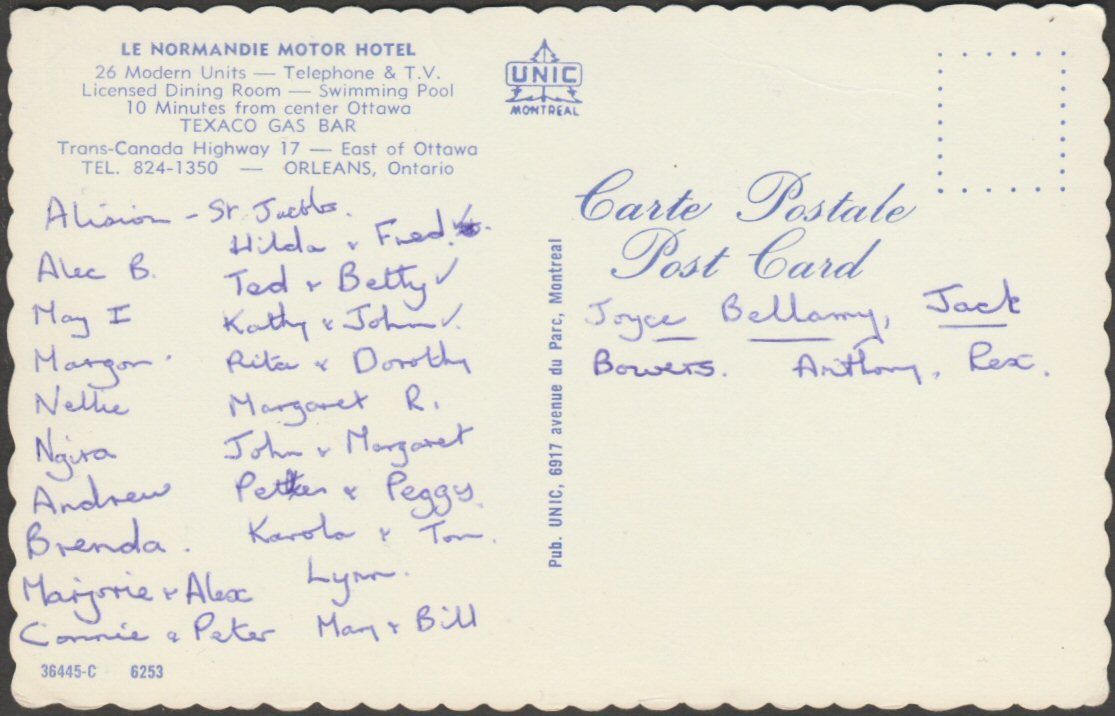 LE NORMANDIE MOTOR HOTEL
26 Modern Units — Telephone & T.V.
Licensed Dining Room — Swimming Pool
10 Minutes from center Ottawa
TEXACO GAS BAR
Trans-Canada Highway 17 — East of Ottawa
TEL. 824-1350 — ORLEANS, Ontario
UNIC
MONTREAL
Carte Postale
Post Card
Pub. UNIC, 6917 avenue du Parc, Montreal
Alision - St. Jacobs.
Hilda & Fred. ✓
Alec B.
Ted & Betty ✓
May I
Kathy & John ✓.
Margon.
Rita & Dorothy
Nellie
Margaret R.
Ngira
John & Margaret
Andrew
Peter & Peggy.
Brenda.
Karola & Tom.
Marjorie & Alex
Lynn.
Connie & Peter
Mary & Bill
Joyce Bellamy, Jack
Bowers. Anthony, Rex.
36445-C 6253